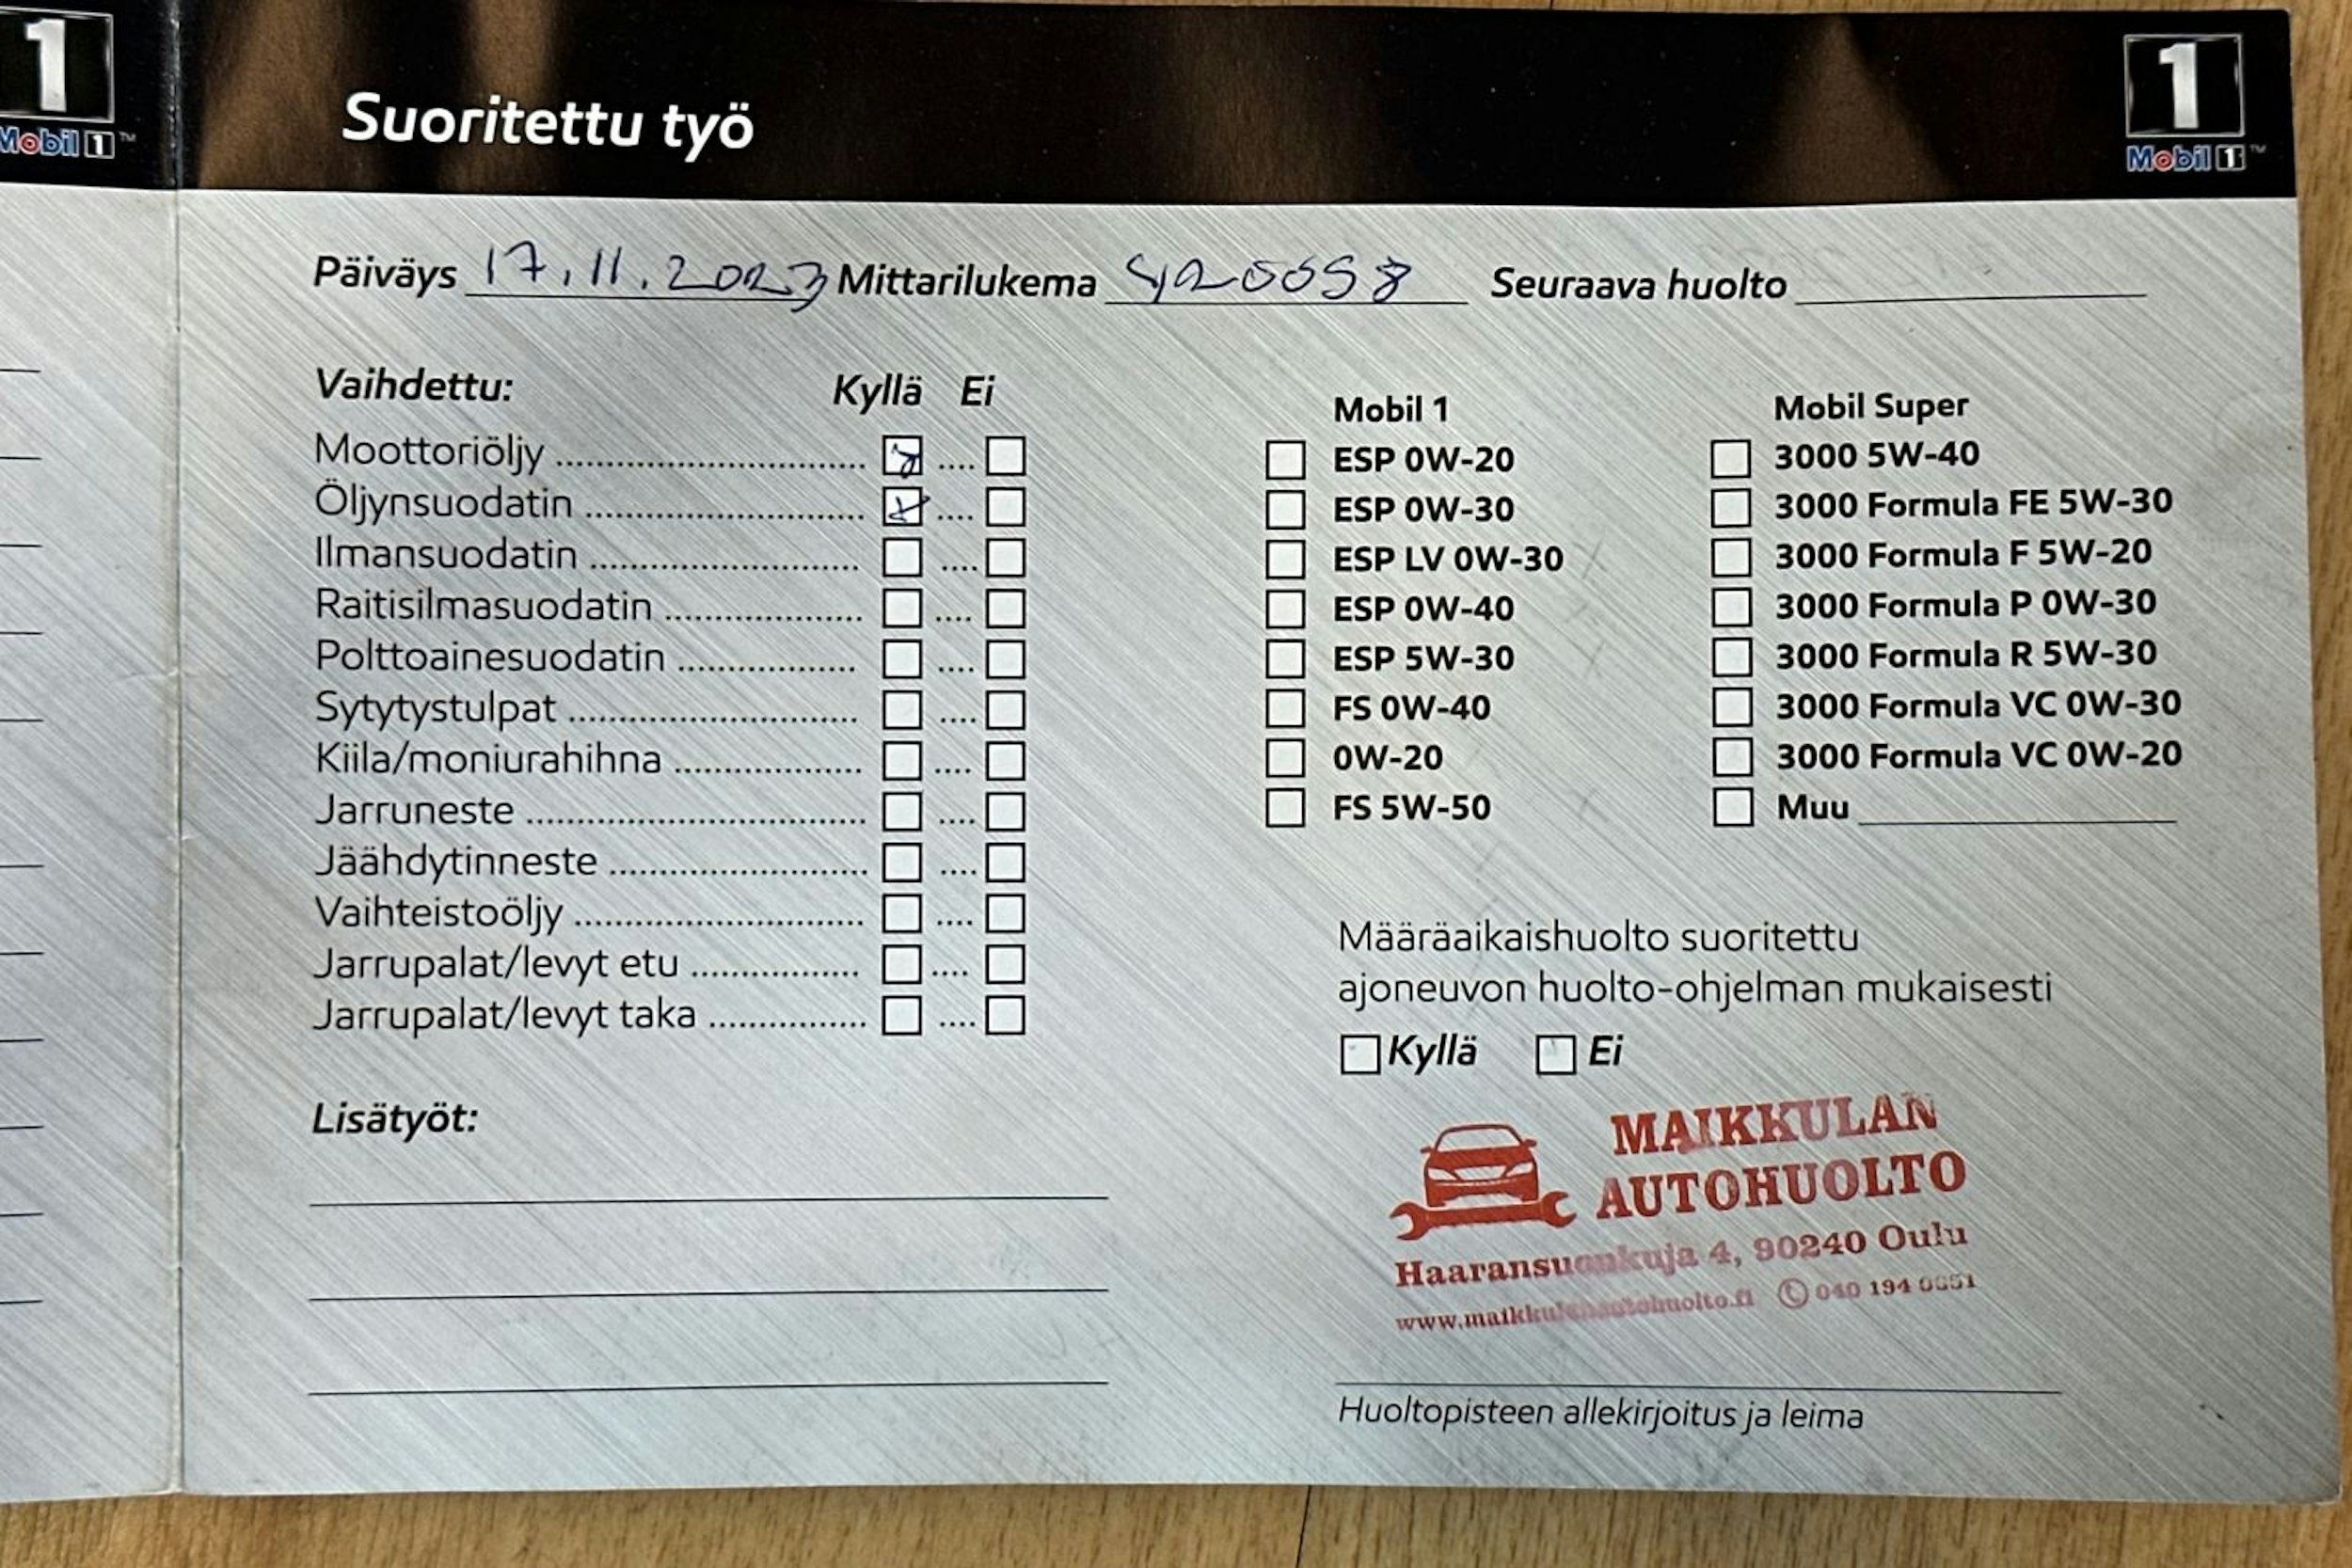 1
Mobil 1™
Suoritettu työ
1
Mobil 1™
Päiväys 17.11.2023 Mittarilukema Seuraava huolto
Vaihdettu: Kyllä Ei
Moottoriöljy
Öljynsuodatin
Ilmansuodatin
Raitisilmasuodatin
Polttoainesuodatin
Sytytystulpat
Kiila/moniurahihna
Jarruneste
Jäähdytinneste
Vaihteistoöljy
Jarrupalat/levyt etu
Jarrupalat/levyt taka
Lisätyöt:
Mobil 1
ESP 0W-20
ESP 0W-30
ESP LV 0W-30
ESP 0W-40
ESP 5W-30
FS 0W-40
0W-20
FS 5W-50
Mobil Super
3000 5W-40
3000 Formula FE 5W-30
3000 Formula F 5W-20
3000 Formula P 0W-30
3000 Formula R 5W-30
3000 Formula VC 0W-30
3000 Formula VC 0W-20
Muu
Määräaikaishuolto suoritettu
ajoneuvon huolto-ohjelman mukaisesti
Kyllä Ei
MAIKKULAN
AUTOHUOLTO
Haaransuonkuja 4, 90240 Oulu
www.maikkulanautohuolto.fi 040 194
Huoltopisteen allekirjoitus ja leima